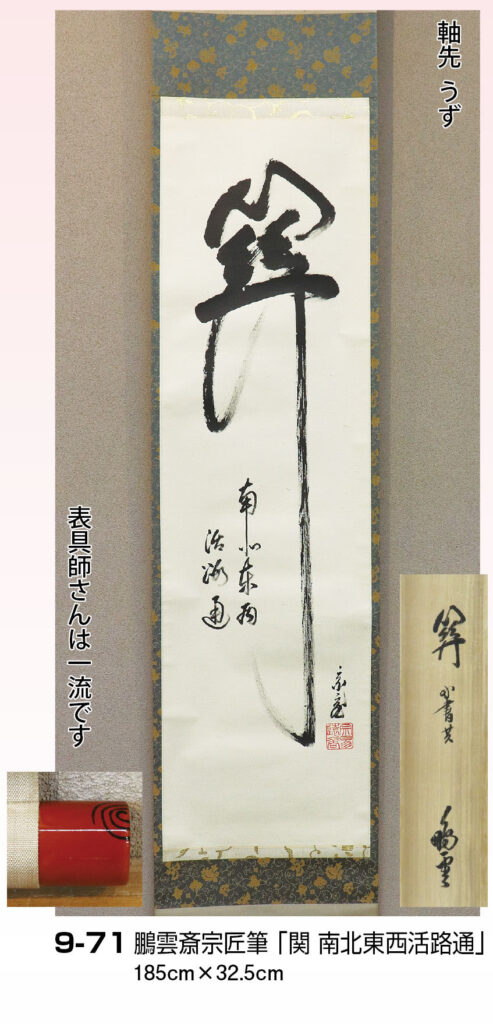 軸先 うず
関
南北東西
活路通
表具師さんは一流です
9-71 鵬雲斎宗匠筆「関 南北東西活路通」
185cm×32.5cm